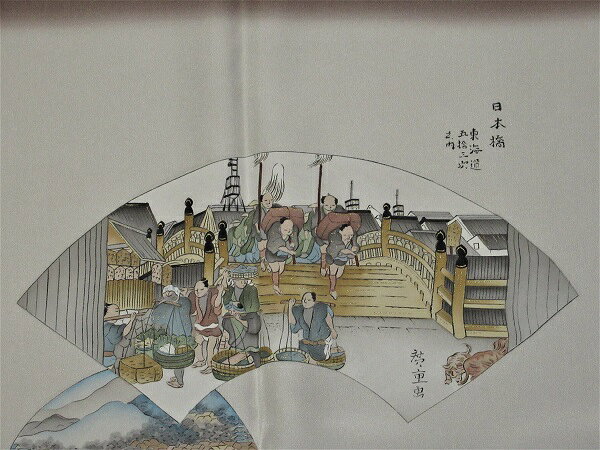 日本橋
東海道
五拾三次
之内
廣重畫